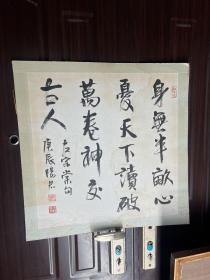 身無半畝心
憂天下讀破
萬卷神交
古人
左宗棠句
庚辰